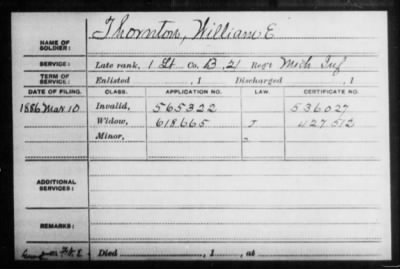 Thornton, William E
NAME OF SOLDIER:
SERVICE: Late rank, 1 Lt Co. B, 21 Reg't Mich Inf
TERM OF SERVICE: Enlisted , 1 Discharged , 1
DATE OF FILING. CLASS. APPLICATION NO. LAW. CERTIFICATE NO.
1886 Mar 10 Invalid, 565322 536027
Widow, 618665 427512
Minor,
ADDITIONAL SERVICES:
REMARKS:
Died , 1 , at